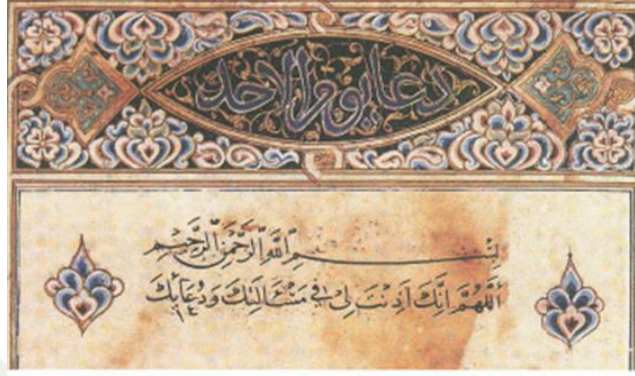 دعاء يوم الاحد
بِسْمِ اللَّهِ الرَّحْمَنِ الرَّحِيمِ
اَللّٰهُمَّ اِنَّكَ اَذِنْتَ لِى فِى مَسْئَالَتِكَ وَدُعَائِكَ